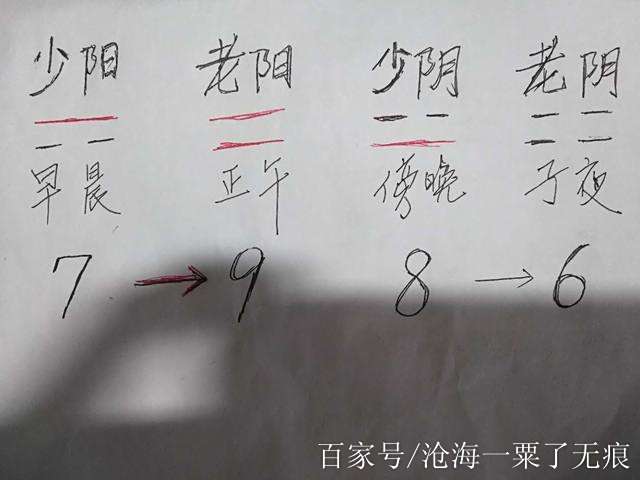 少阳 老阳 少阴 老阴
早晨 正午 傍晚 子夜
7 → 9 8 → 6
百家号/沧海一粟了无痕